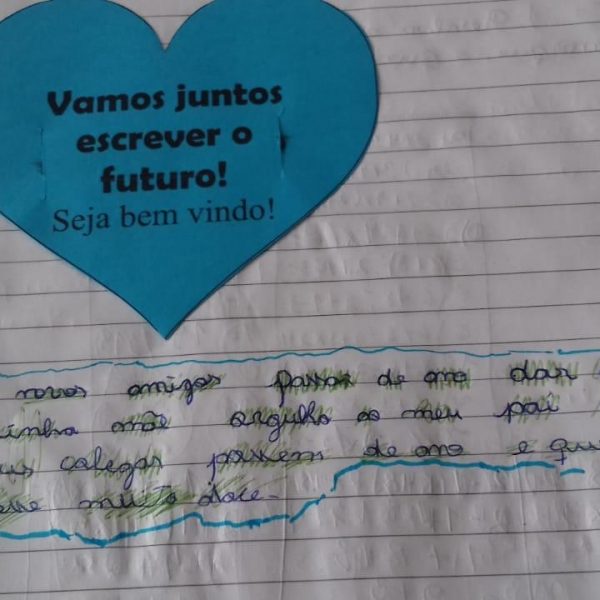 Vamos juntos
escrever o
futuro!
Seja bem vindo!
novos amigos passar de ano dar
mãe orgulho ao meu pai
colegas passem de ano e que
muito doce.